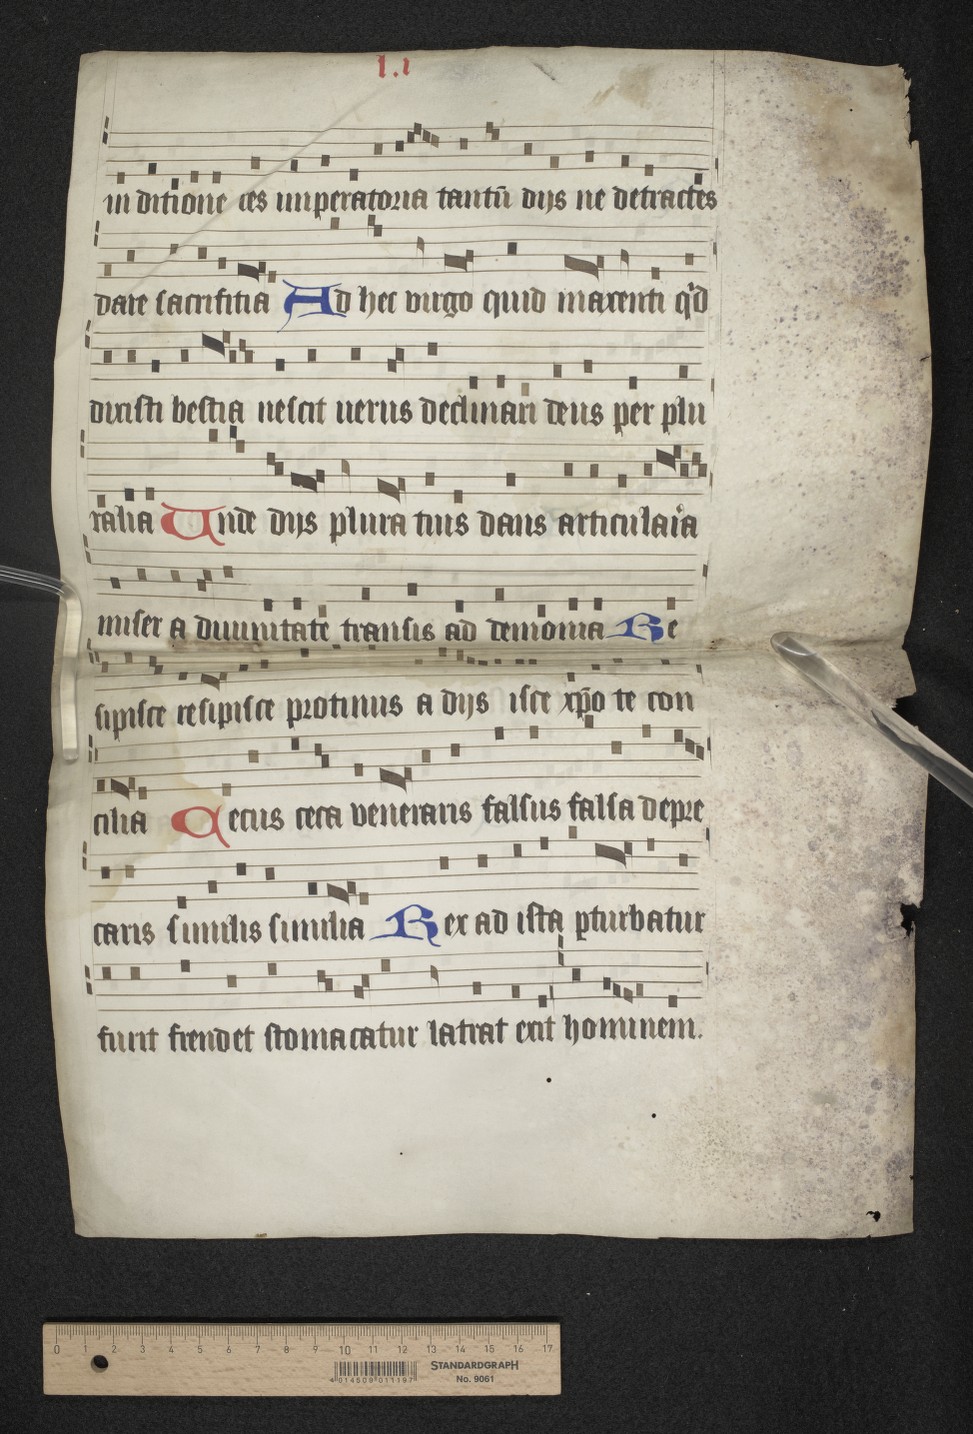 l.i
in ditione ces imperatoria tantū dijs ne detractes
dare sacrifitia Ad hec virgo quid maxenti qd
dixisti bestia nescit uerus declinari deus per plu
ralia Unde dijs plura tuis dans articularia
miser a diuinitate transis ad demonia Re
sipisce resipisce protinus a dijs isce xp̄o te con
cilia Cecus ceca veneraris falsus falsa depre
caris similis similia Rex ad ista pturbatur
furit frendet stomacatur latrat exit hominem.
0 1 2 3 4 5 6 7 8 9 10 11 12 13 14 15 16 17
4 014509 011197
STANDARDGRAPH
No. 9061